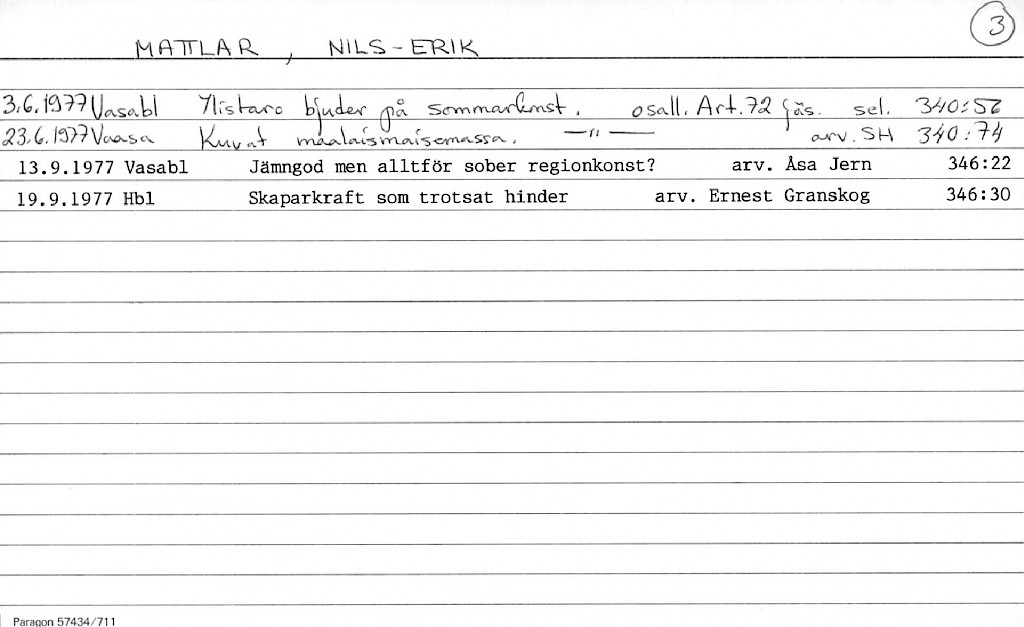 3
MATTLAR, NILS-ERIK
3.6.1977 Vasabl Ylistaro bjuder på sommarkonst. osall. Art.72 jäs. sel. 340:56
23.6.1977 Vaasa Kuvat maalaismaisemassa. —"— arv. SH 340:74
13.9.1977 Vasabl Jämngod men alltför sober regionkonst? arv. Åsa Jern 346:22
19.9.1977 Hbl Skaparkraft som trotsat hinder arv. Ernest Granskog 346:30
Paragon 57434/711